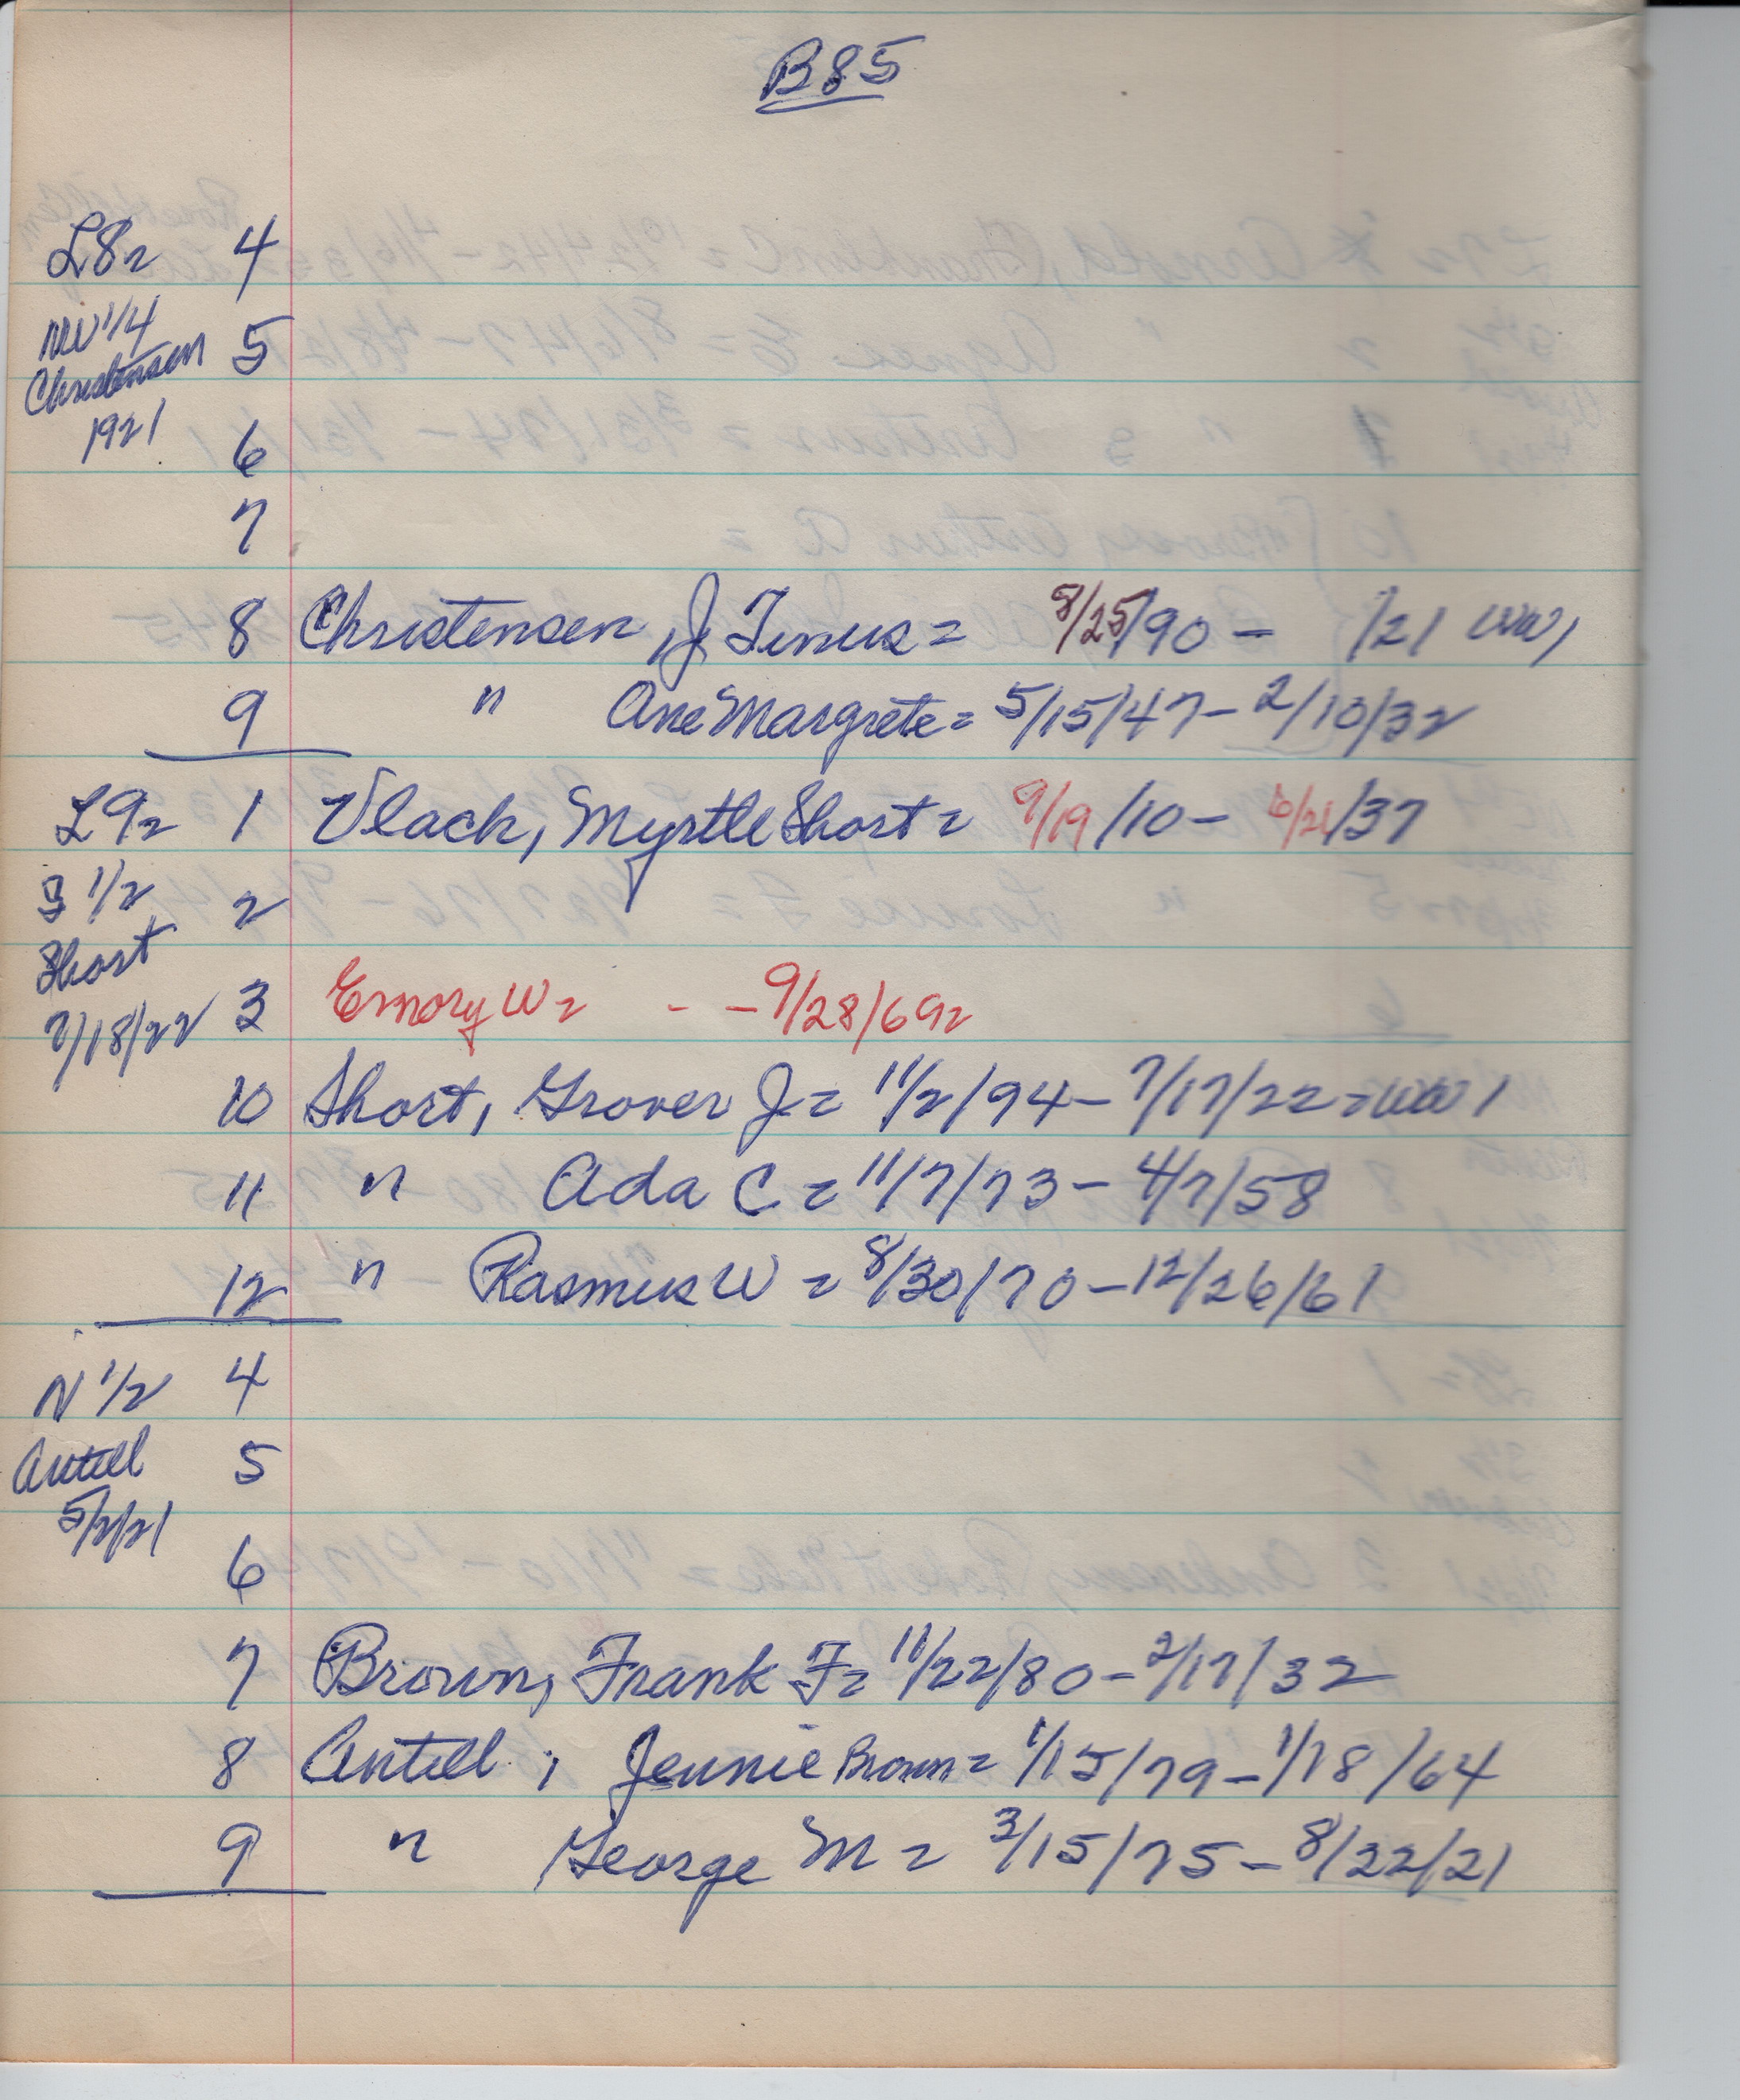 B85
L8= 4
NW 1/4 5
Christensen
1921 6
7
8 Christensen, J Tinus = 8/25/90 - /21 WW1
9 " Ane Margrete = 5/15/47 - 2/10/32
L9= 1 Vlach, Myrtle Short = 9/19/10 - 6/21/37
S 1/2 2
Short
7/18/22 3 Emory W= - - 9/28/69=
10 Short, Grover J = 11/2/94 - 7/17/22 = WW1
11 " Ada C = 11/7/73 - 4/7/58
12 " Rasmus W = 8/30/70 - 12/26/61
N 1/2 4
Antill 5
5/2/21
6
7 Brown, Frank F= 11/22/80 - 2/17/32
8 Antill, Jennie Brown = 1/15/79 - 1/18/64
9 " George M = 3/15/75 - 8/22/21